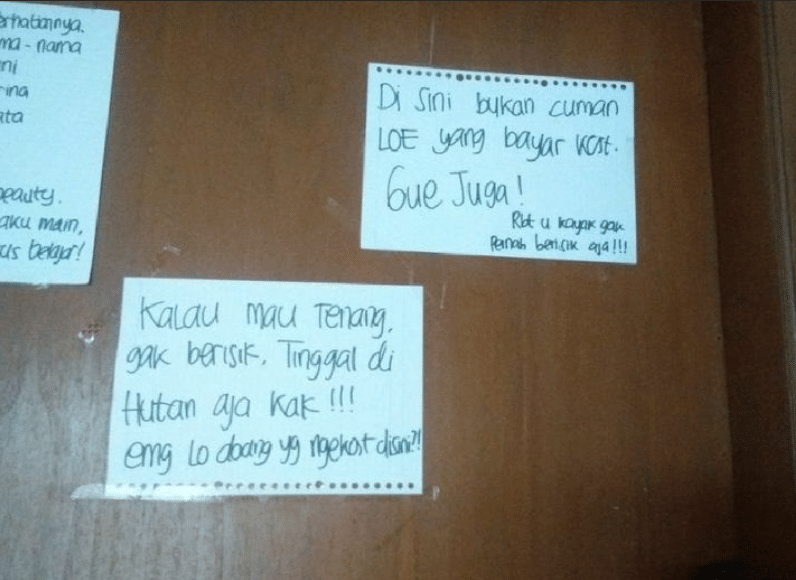 erhatiannya.
ma - nama
ini
rina
ata
beauty.
aku main,
us belajar!
Di Sini bukan cuman
LOE yang bayar kost.
Gue Juga!
Rbt u kayak gak
Pernah berisik aja!!!
Kalau mau Tenang,
gak berisik, Tinggal di
Hutan aja Kak!!!
emg Lo doang yg ngekost disini?!